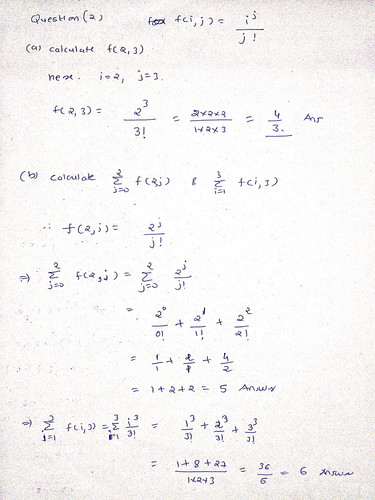 Question(2) f(i,j) = i^j / j!
(a) calculate f(2,3)
here. i=2, j=3.
f(2,3) = 2^3 / 3! = 2×2×2 / 1×2×3 = 4 / 3. Ans
(b) calculate ∑_{j=0}^{2} f(2,j) & ∑_{i=1}^{3} f(i,3)
∴ f(2,j) = 2^j / j!
⇒ ∑_{j=0}^{2} f(2,j) = ∑_{j=0}^{2} 2^j / j!
= 2^0 / 0! + 2^1 / 1! + 2^2 / 2!
= 1/1 + 2/1 + 4/2
= 1+2+2 = 5 Answer
⇒ ∑_{i=1}^{3} f(i,3) = ∑_{i=1}^{3} i^3 / 3! = 1^3 / 3! + 2^3 / 3! + 3^3 / 3!
= 1+8+27 / 1×2×3 = 36/6 = 6 Answer